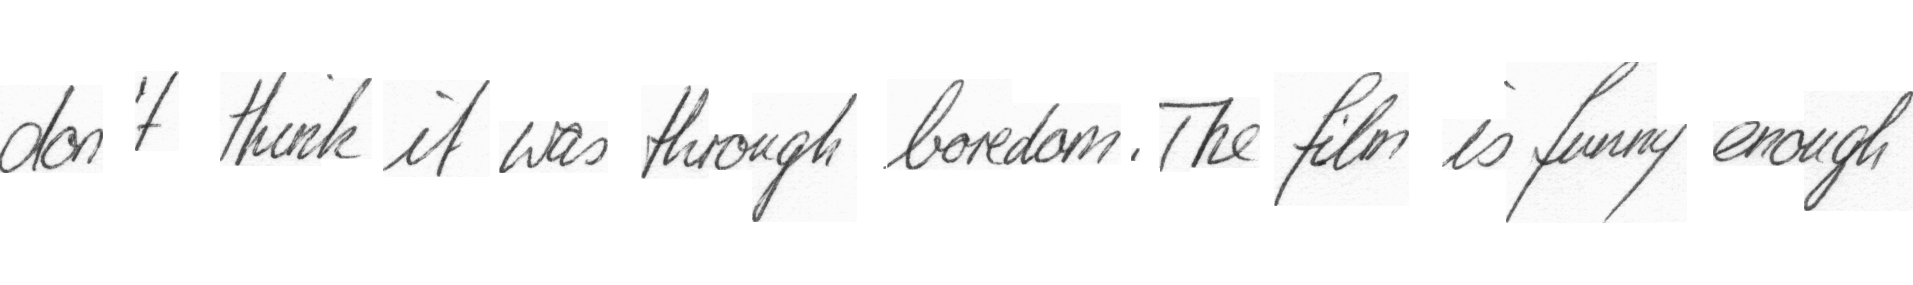 don't think it was through boredom. The film is funny enough